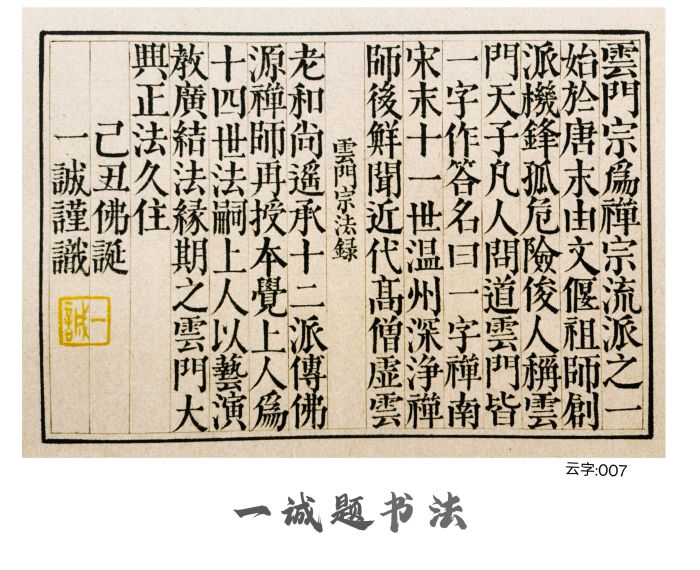 雲門宗爲禪宗流派之一
始於唐末由文偃祖師創
派機鋒孤危險俊人稱雲
門天子凡人問道雲門皆
一字作答名曰一字禪南
宋末十一世温州深净禪
師後鮮聞近代髙僧虚雲
雲門宗法録
老和尚遥承十二派傳佛
源禪師再授本覺上人爲
十四世法嗣上人以藝演
教廣結法緣期之雲門大
興正法久住
己丑佛誕
一誠謹識
一誠
云字:007
一诚题书法